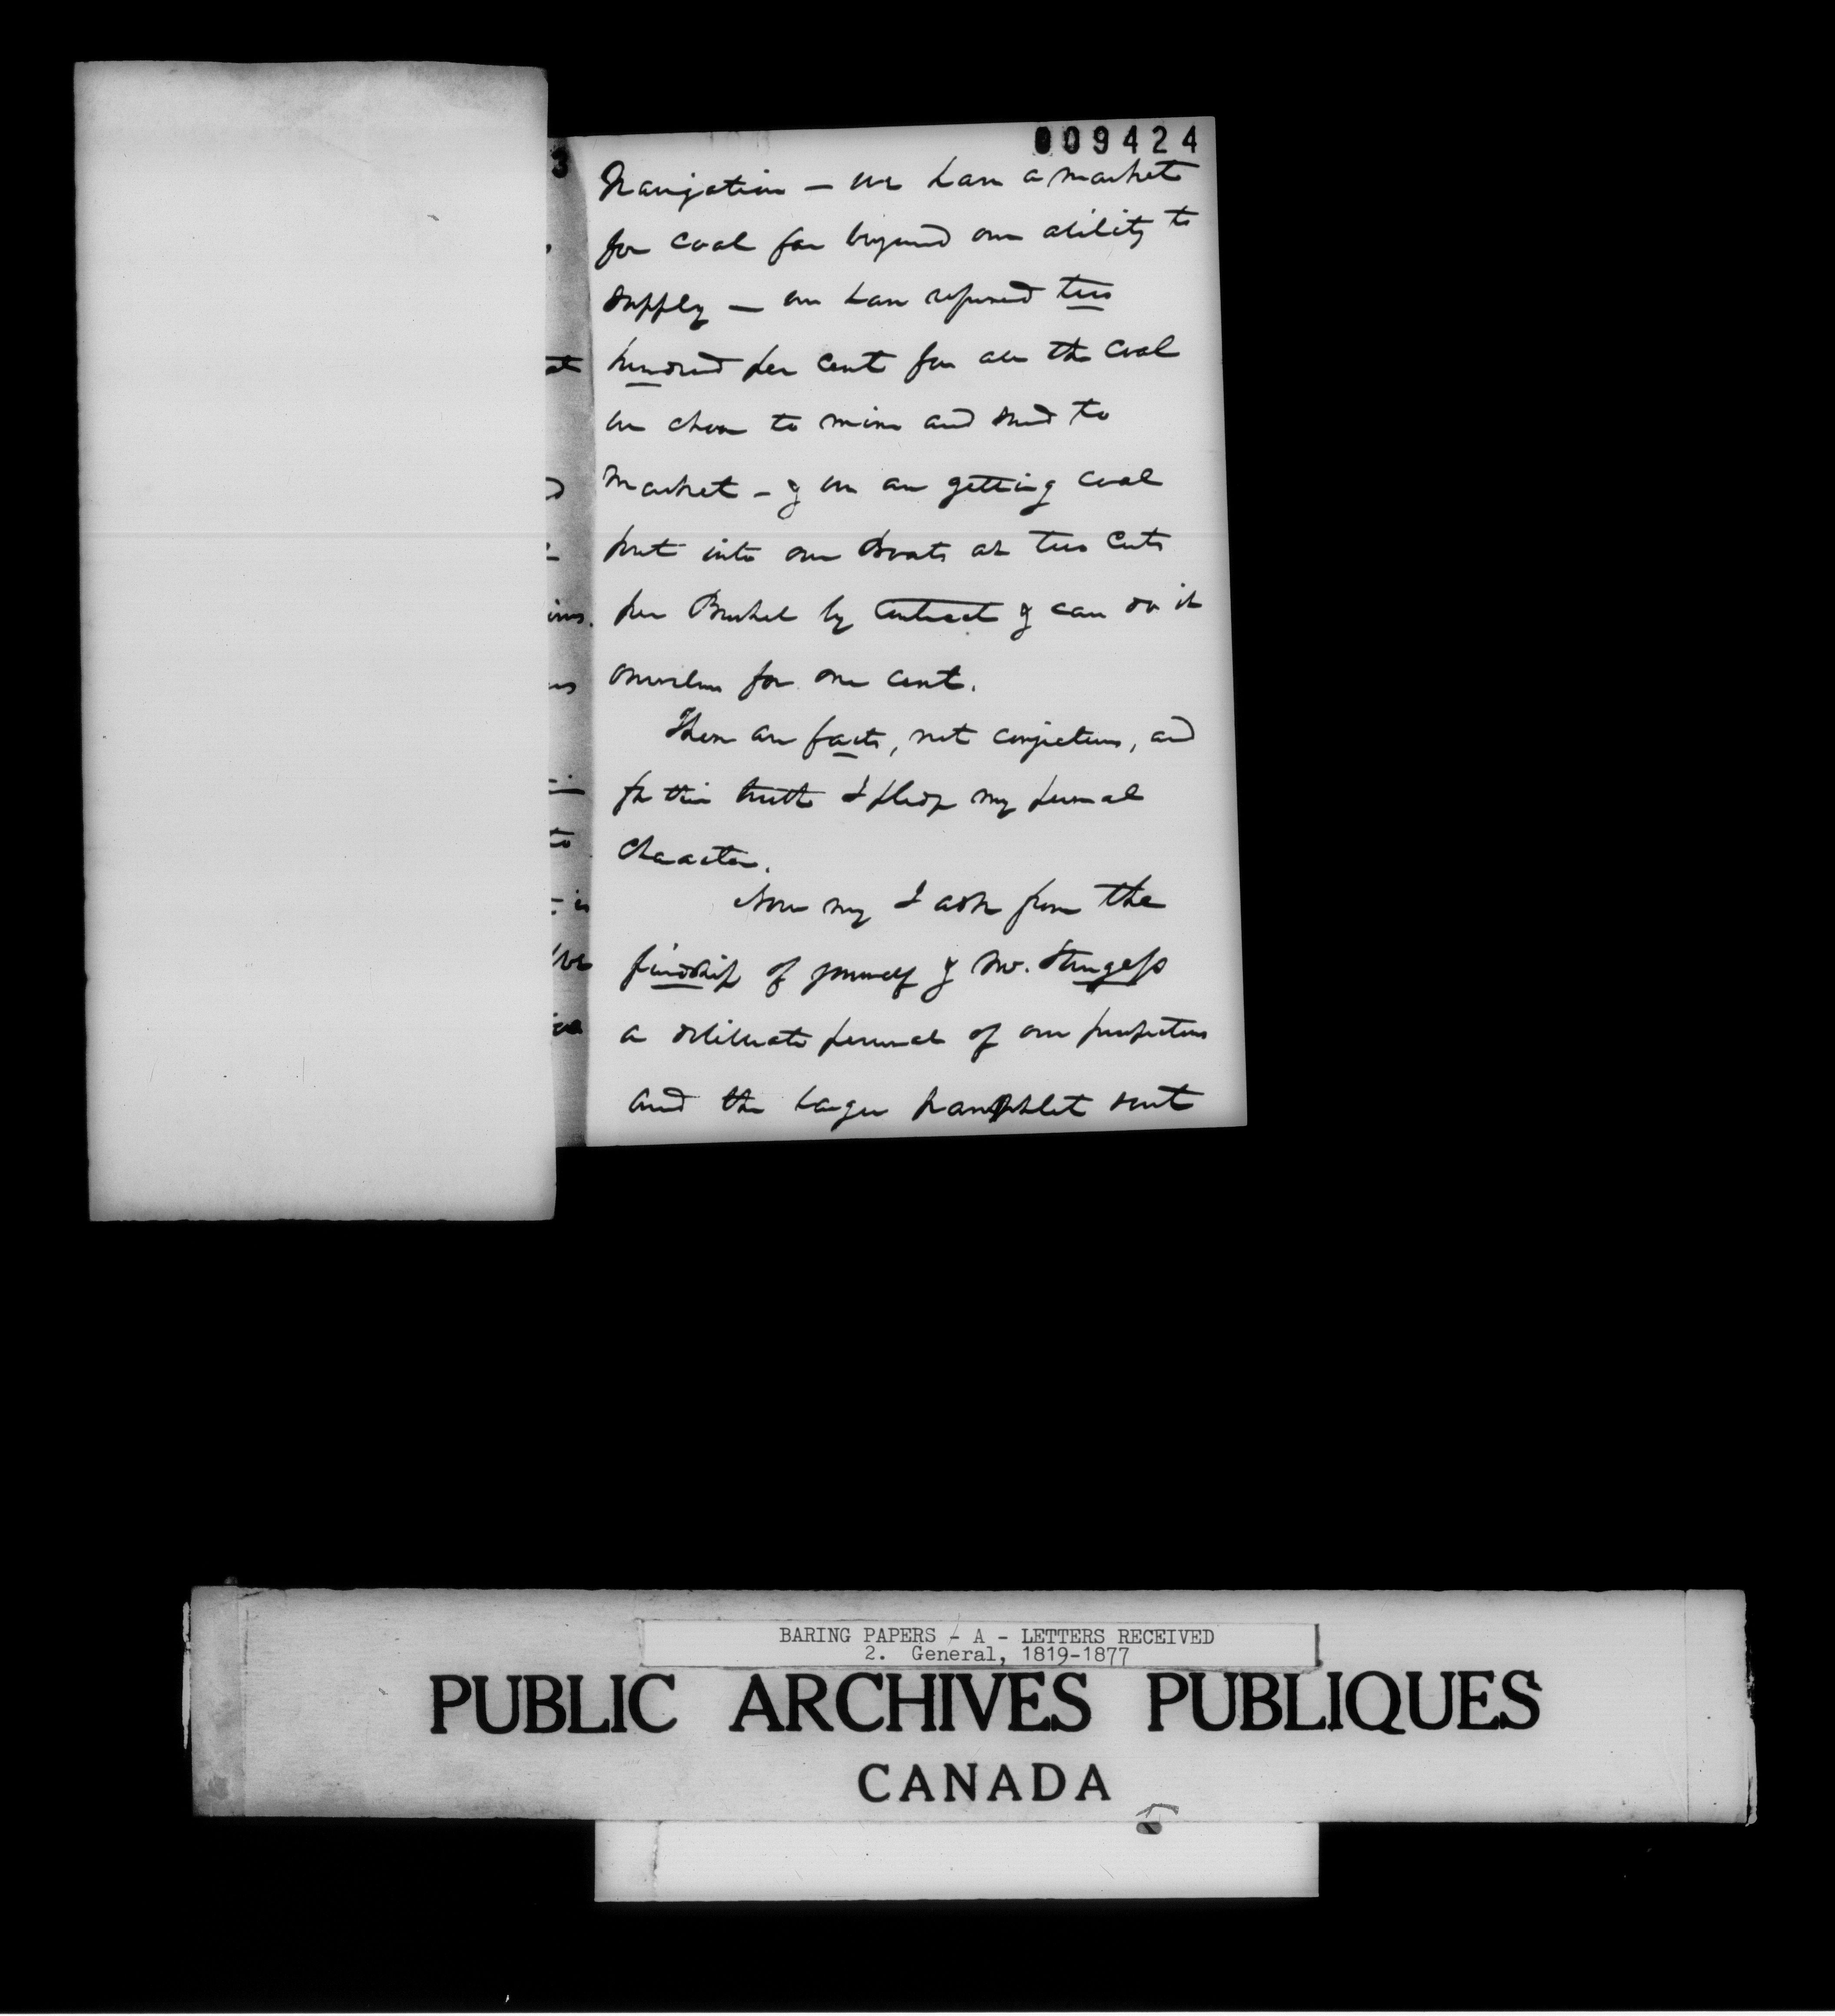 009424
Navigation — we have a market
for coal far beyond our ability to
supply — we have refused two
hundred per cent for all the coal
we chose to mine and send to
market - & we are getting coal
put into our Boats at two cents
per Bushel by contract & can do it
ourselves for one cent.
These are facts, not conjectures, and
for their truth I pledge my personal
character.
Now my I ask from the
friendship of yourself & Mr. Sturgess
a deliberate perusal of our prospectus
and the larger pamphlet sent
3
at
ins.
to
BARING PAPERS - A - LETTERS RECEIVED
2. General, 1819-1877
PUBLIC ARCHIVES PUBLIQUES
CANADA